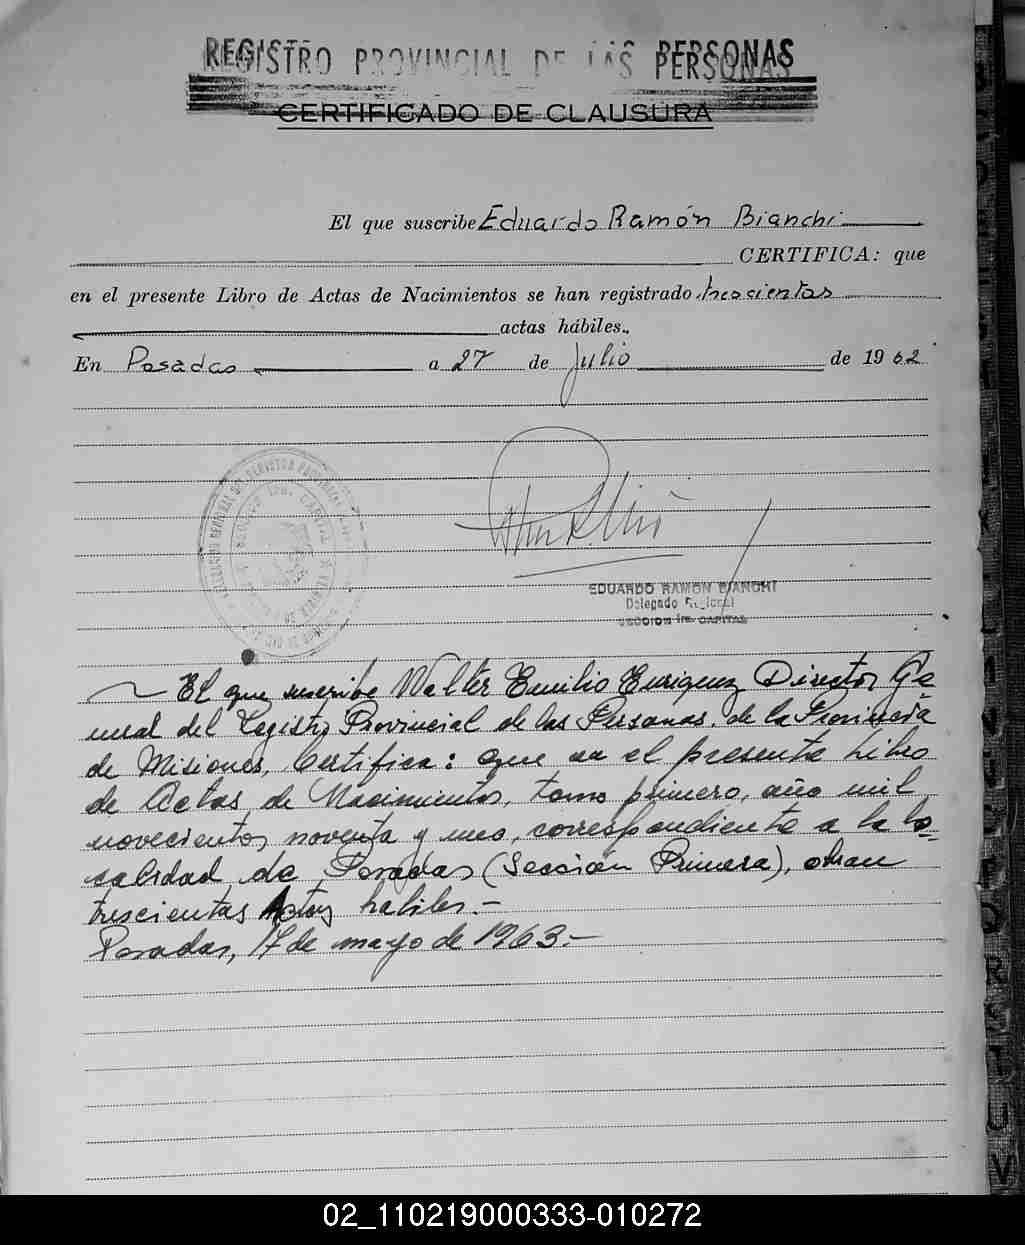 REGISTRO PROVINCIAL DE LAS PERSONAS
CERTIFICADO DE CLAUSURA
El que suscribe Eduardo Ramón Bianchi
CERTIFICA: que
en el presente Libro de Actas de Nacimientos se han registrado trescientas
actas hábiles.
En Posadas a 27 de Julio de 1962
EDUARDO RAMON BIANCHI
Delegado Regional
SECCION 1ra. CAPITAL
El que suscribe Walter Emilio Enriquez Director Ge-
neral del Registro Provincial de las Personas, de la Provincia
de Misiones, Certifica: que en el presente Libro
de Actas de Nacimientos, tomo primero, año mil
novecientos noventa y uno, correspondiente a la lo-
calidad de Posadas (Sección Primera), obran
trescientas Actas habiles.-
Posadas, 17 de mayo de 1963.-
02_110219000333-010272